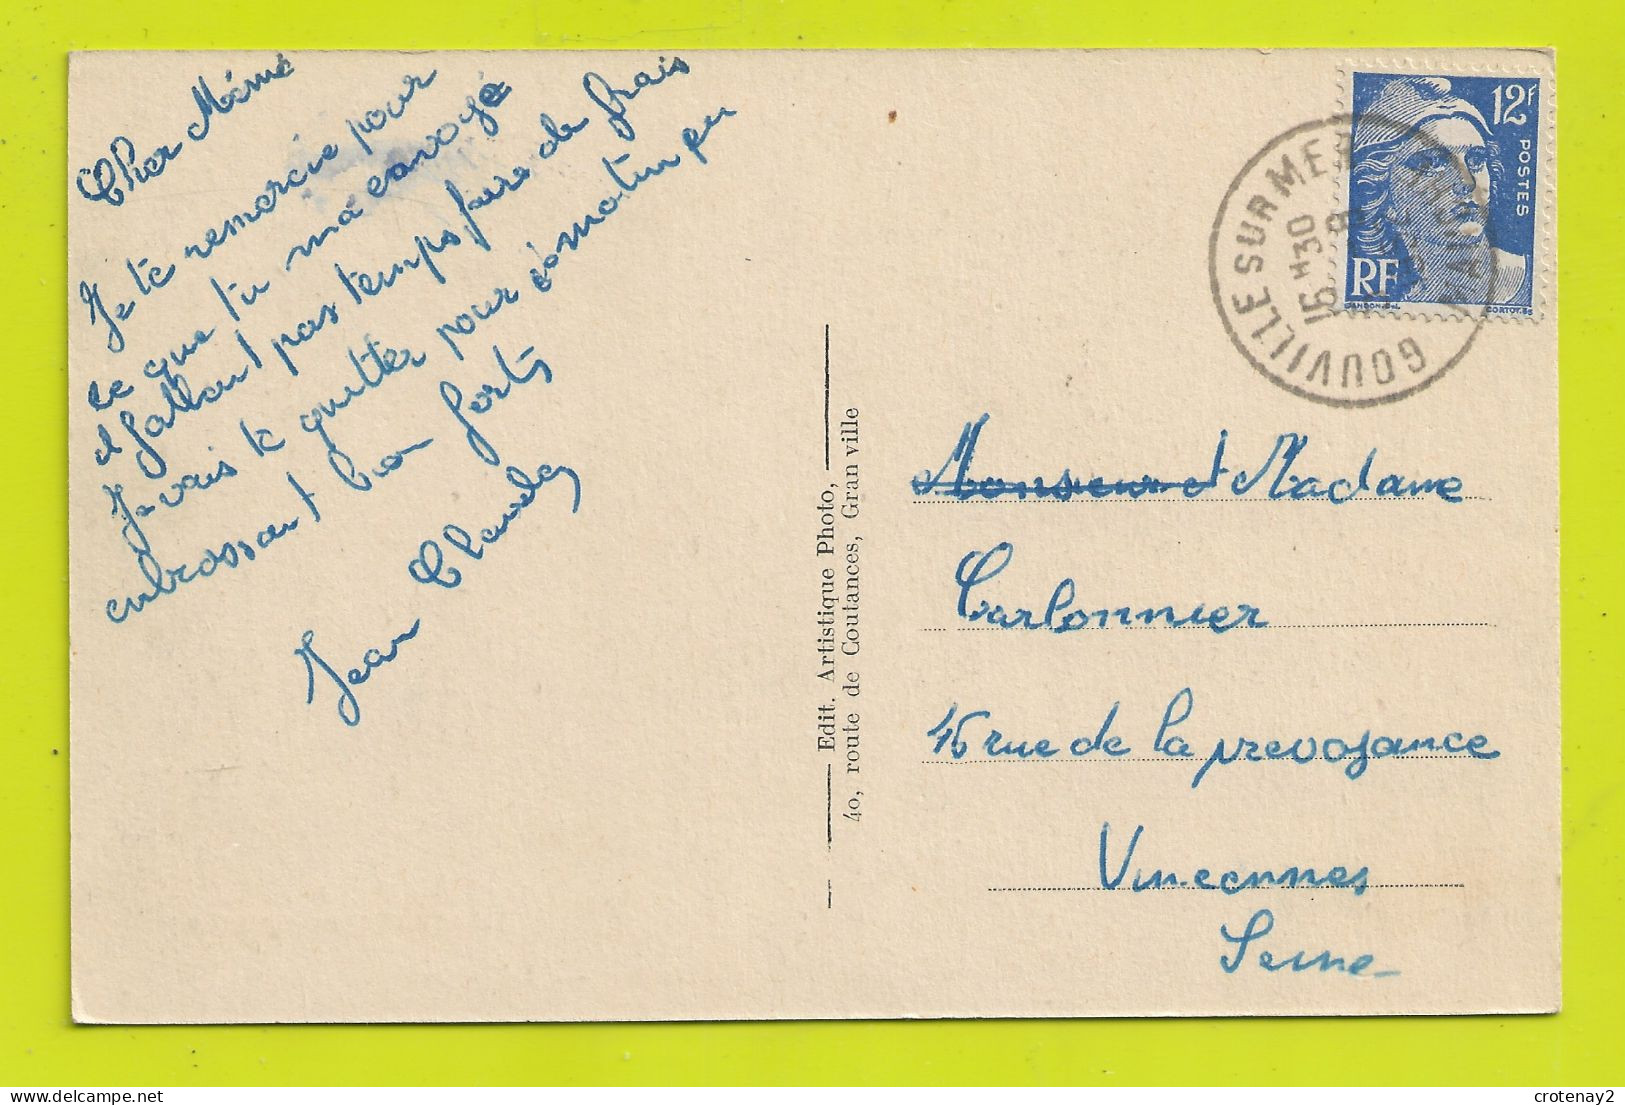 Cher Mémé
Je te remercie pour
ce que tu ma envoyé
il fallait pas temps faire de frais
Je vais te quitter pour en
embrassant bien forts
Jean Claude
Edit. Artistique Photo,
40, route de Coutances, Granville
12F
POSTES
RF
GANDON.DEL
CORTOT.SC
GOUVILLE SUR MER
15H30
MANCHE
Monsieur et Madame
Carbonnier
46 rue de la prevoyance
Vincennes
Seine
crotenay2